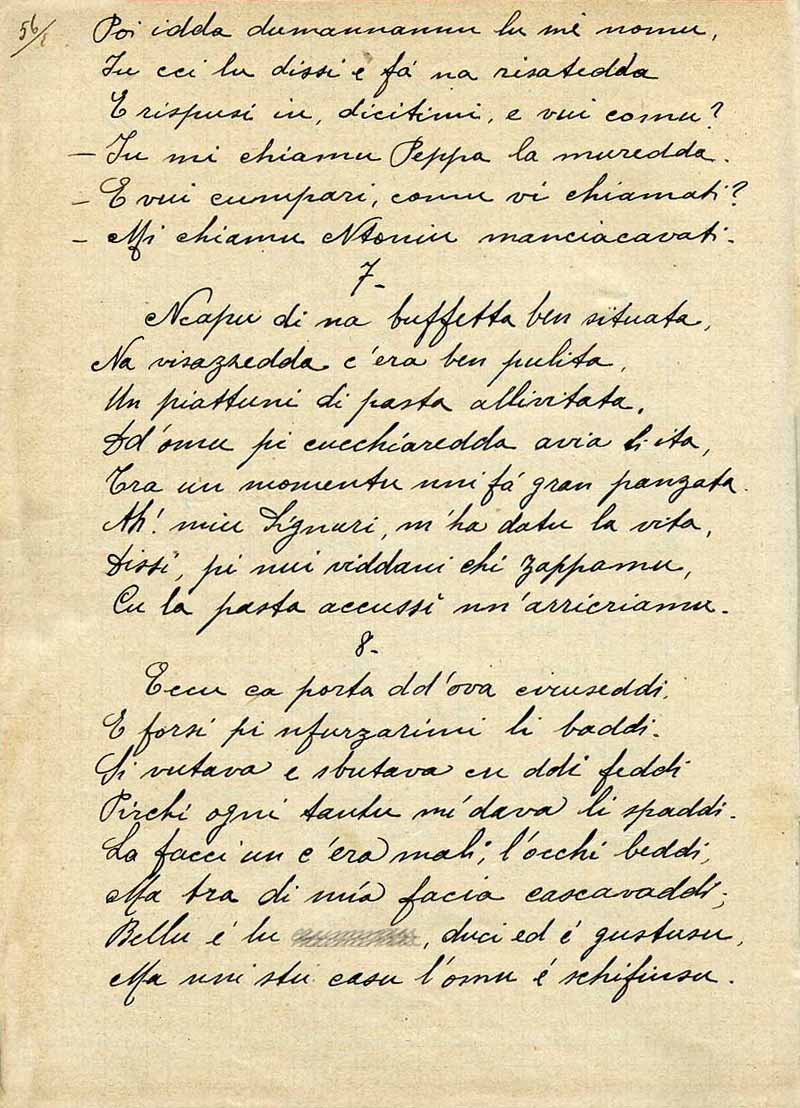 56/
Poi idda dumannannu lu mé nomu,
Iu cci lu dissi e fá na risatedda
E rispusi iu, dicitimi, e vui comu?
— Iu mi chiamu Peppa la muredda.
— E vui cumpari, comu vi chiamati?
— Mi chiamu Ntoniu manciacavati.
7-
Ncapu di na buffetta ben situata,
Na visazzedda c'era ben pulita,
Un piattuni di pasta allivitata,
Dd'omu pi cucchiaredda avia li ita,
Tra un momentu nni fá gran panzata.
Ah! miu Signuri, m'ha datu la vita,
Dissi, pi nui viddani chi zappamu,
Cu la pasta accussì nn'arricriamu.
8-
Eccu ca porta dd'ova ciruseddi,
E forsi pi nfurzarimi li baddi.
Si vutava e sbutava cu ddi feddi
Pirchí ogni tantu mi dava li spaddi.
La facci un c'era mali, l'occhi beddi,
Ma tra di mía facia cascavaddi;
Bellu é lu , duci ed é gustusu,
Ma nni stu casu l'omu é schifiusu.